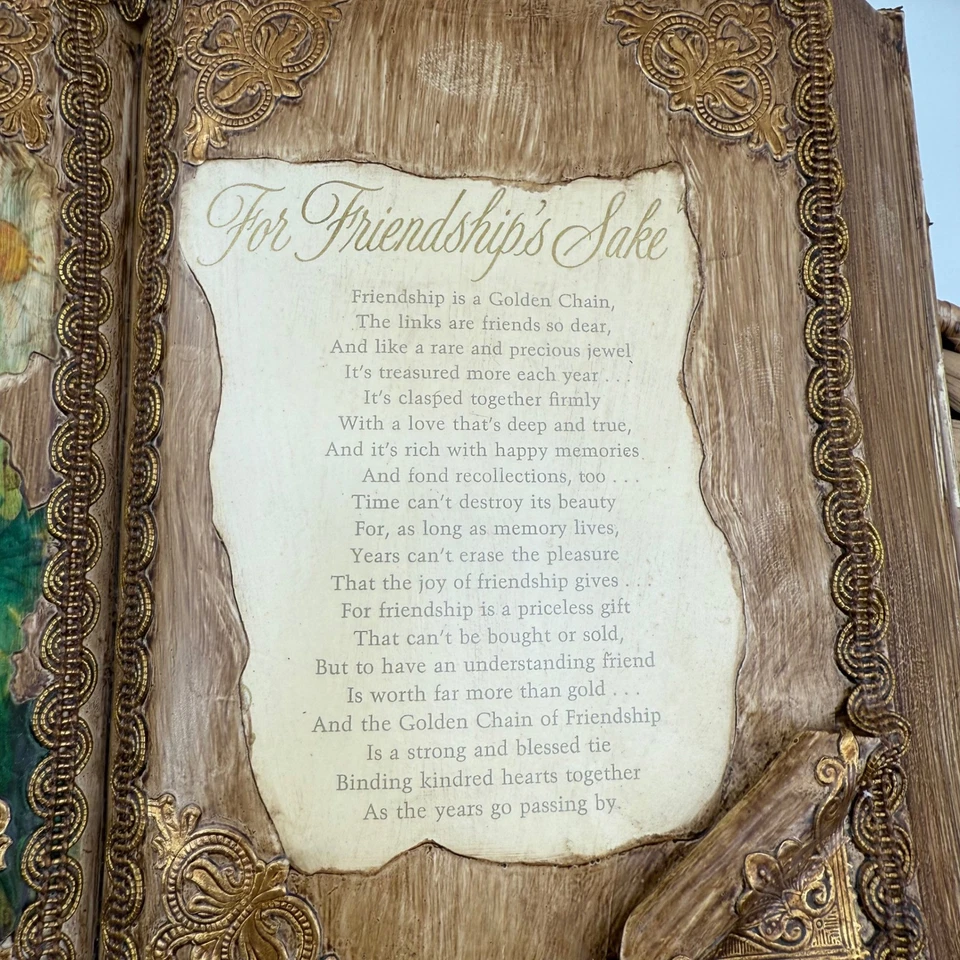 For Friendship's Sake
Friendship is a Golden Chain,
The links are friends so dear,
And like a rare and precious jewel
It's treasured more each year . . .
It's clasped together firmly
With a love that's deep and true,
And it's rich with happy memories
And fond recollections, too . . .
Time can't destroy its beauty
For, as long as memory lives,
Years can't erase the pleasure
That the joy of friendship gives . . .
For friendship is a priceless gift
That can't be bought or sold,
But to have an understanding friend
Is worth far more than gold . . .
And the Golden Chain of Friendship
Is a strong and blessed tie
Binding kindred hearts together
As the years go passing by.